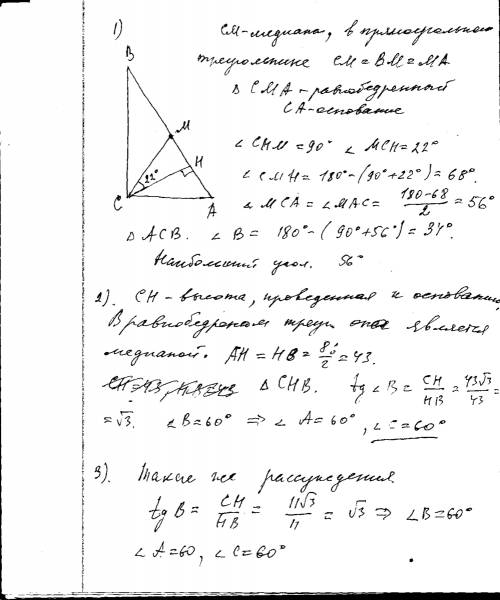 1)
CM-медиана, в прямоугольном
треугольнике CM = BM = MA
Δ CMA - равнобедренный
CA-основание
∠ CHM = 90° ∠ MCH = 22°
∠ CMH = 180° - (90° + 22°) = 68°.
∠ MCA = ∠ MAC = 180-68/2 = 56°
Δ ACB. ∠ B = 180° - (90° + 56°) = 34°.
Наибольший угол. 56°
B
M
H
22°
C
A
2). CH - высота, проведенная к основанию,
В равнобедренном треуг. она является
медианой. AH = HB = 86/2 = 43.
Δ CHB. tg ∠ B = CH/HB = 43√3/43 =
= √3. ∠B = 60° ⇒ ∠ A = 60°, ∠ C = 60°
3). Такие же рассуждения
tg B = CH/HB = 11√3/11 = √3 ⇒ ∠B = 60°
∠ A = 60, ∠ C = 60°